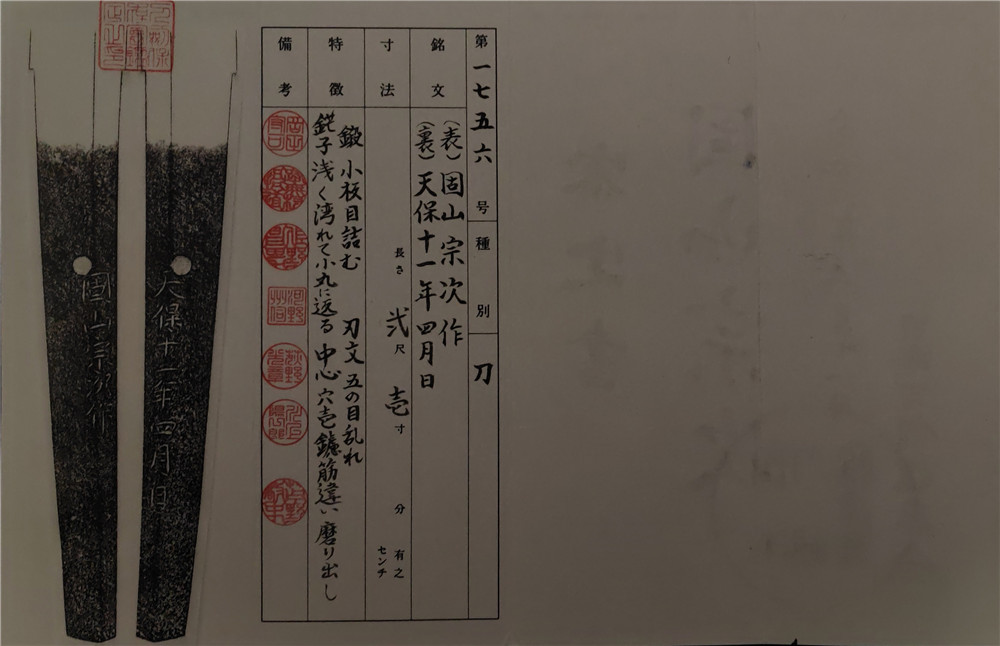 第一七五六号 種別 刀
銘文 (表) 固山宗次作
(裏) 天保十一年四月日
寸法 長さ 弐尺 壱寸 分 有之
センチ
特徴 鍛 小板目詰む 刃文 五の目乱れ
鋩子浅く湾れて小丸に返る 中心穴壱鑢筋違い磨り出し
備考
天保十一年四月日
固山宗次作